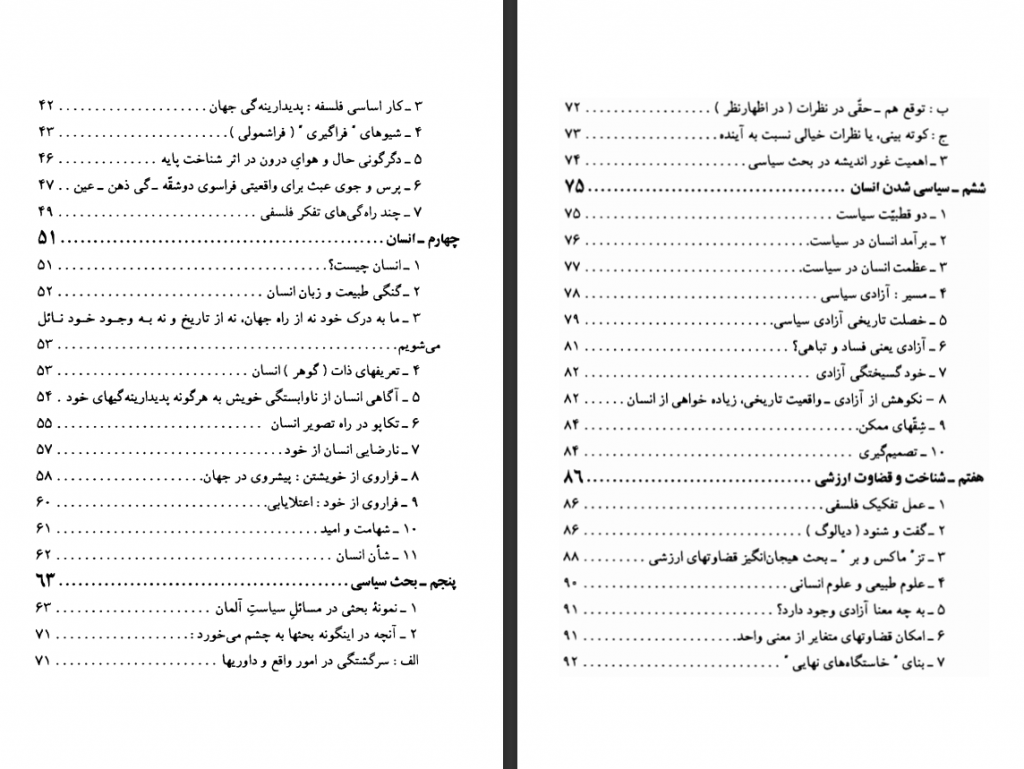 ۳ ـ کار اساسی فلسفه : پدیدارینه‌گی جهان . . . . . . . . . . . . . . . . . . . . . ۴۲
۴ ـ شیوهای " فراگیری " ( فراشمولی ) . . . . . . . . . . . . . . . . . . . . . . . . ۴۳
۵ ـ دگرگونی حال و هوایِ درون در اثر شناخت پایه . . . . . . . . . . . . . . ۴۶
۶ ـ پرس و جوی عبث برای واقعیتی فراسوی دوشقّه ـ گی ذهن ـ عین . . ۴۷
۷ ـ چند راه‌گی‌های تفکر فلسفی . . . . . . . . . . . . . . . . . . . . . . . . . . . . ۴۹
چهارم ـ انسان . . . . . . . . . . . . . . . . . . . . . . . . . . . . . . . . . . . . . . . . . . . . . . . . ۵۱
۱ ـ انسان چیست؟ . . . . . . . . . . . . . . . . . . . . . . . . . . . . . . . . . . . . . . ۵۱
۲ ـ گنگی طبیعت و زبان انسان . . . . . . . . . . . . . . . . . . . . . . . . . . . . . ۵۲
۳ ـ ما به درک خود نه از راه جهان، نه از تاریخ و نه بـه وجـود خـود نـائل
می‌شویم . . . . . . . . . . . . . . . . . . . . . . . . . . . . . . . . . . . . . . . . . . . . . . . ۵۳
۴ ـ تعریفهای ذات ( گوهر ) انسان . . . . . . . . . . . . . . . . . . . . . . . . . . . ۵۳
۵ ـ آگاهی انسان از ناوابستگی خویش به هرگونه پدیدارینه‌گیهای خود . ۵۴
۶ ـ تکاپو در راه تصویر انسان . . . . . . . . . . . . . . . . . . . . . . . . . . . . . ۵۵
۷ ـ نارضایی انسان از خود . . . . . . . . . . . . . . . . . . . . . . . . . . . . . . . . ۵۷
۸ ـ فراروی از خویشتن : پیشروی در جهان . . . . . . . . . . . . . . . . . . . . . ۵۸
۹ ـ فراروی از خود : اعتلایابی . . . . . . . . . . . . . . . . . . . . . . . . . . . . . . ۶۰
۱۰ ـ شهامت و امید . . . . . . . . . . . . . . . . . . . . . . . . . . . . . . . . . . . . . . ۶۱
۱۱ ـ شأن انسان . . . . . . . . . . . . . . . . . . . . . . . . . . . . . . . . . . . . . . . ۶۲
پنجم ـ بحث سیاسی . . . . . . . . . . . . . . . . . . . . . . . . . . . . . . . . . . . . . . . . . . . ۶۳
۱ ـ نمونهٔ بحثی در مسائلِ سیاستِ آلمان . . . . . . . . . . . . . . . . . . . . . . ۶۳
۲ ـ آنچه در اینگونه بحثها به چشم می‌خورد : . . . . . . . . . . . . . . . . . . . ۷۱
الف : سرگشتگی در امور واقع و داوریها . . . . . . . . . . . . . . . . . . . . . . . ۷۱
ب : توقع هم ـ حقّی در نظرات ( در اظهارنظر ) . . . . . . . . . . . . . . . . . . ۷۲
ج : کوته بینی، یا نظرات خیالی نسبت به آینده . . . . . . . . . . . . . . . . . . . ۷۳
۳ ـ اهمیت غور اندیشه در بحث سیاسی . . . . . . . . . . . . . . . . . . . . . . . ۷۴
ششم ـ سیاسی شدن انسان . . . . . . . . . . . . . . . . . . . . . . . . . . . . . . . . . . . . . . ۷۵
۱ ـ دو قطبیّت سیاست . . . . . . . . . . . . . . . . . . . . . . . . . . . . . . . . . . . ۷۵
۲ ـ برآمد انسان در سیاست . . . . . . . . . . . . . . . . . . . . . . . . . . . . . . . . ۷۶
۳ ـ عظمت انسان در سیاست . . . . . . . . . . . . . . . . . . . . . . . . . . . . . . . ۷۷
۴ ـ مسیر : آزادی سیاسی . . . . . . . . . . . . . . . . . . . . . . . . . . . . . . . . . ۷۸
۵ ـ خصلت تاریخی آزادی سیاسی . . . . . . . . . . . . . . . . . . . . . . . . . . . ۷۹
۶ ـ آزادی یعنی فساد و تباهی؟ . . . . . . . . . . . . . . . . . . . . . . . . . . . . . ۸۱
۷ ـ خود گسیختگی آزادی . . . . . . . . . . . . . . . . . . . . . . . . . . . . . . . . ۸۲
۸ – نکوهش از آزادی ـ واقعیت تاریخی، زیاده خواهی از انسان . . . . . . ۸۲
۹ ـ شِقّهای ممکن . . . . . . . . . . . . . . . . . . . . . . . . . . . . . . . . . . . . . . . ۸۴
۱۰ ـ تصمیم‌گیری . . . . . . . . . . . . . . . . . . . . . . . . . . . . . . . . . . . . . . ۸۴
هفتم ـ شناخت و قضاوت ارزشی . . . . . . . . . . . . . . . . . . . . . . . . . . . . . . . . . . ۸۶
۱ ـ عمل تفکیک فلسفی . . . . . . . . . . . . . . . . . . . . . . . . . . . . . . . . . . ۸۶
۲ ـ گفت و شنود ( دیالوگ ) . . . . . . . . . . . . . . . . . . . . . . . . . . . . . . . ۸۶
۳ ـ تز " ماکس و بر " ـ بحث هیجان‌انگیز قضاوتهای ارزشی . . . . . . . . . ۸۸
۴ ـ علوم طبیعی و علوم انسانی . . . . . . . . . . . . . . . . . . . . . . . . . . . . . ۹۰
۵ ـ به چه معنا آزادی وجود دارد؟ . . . . . . . . . . . . . . . . . . . . . . . . . . . ۹۱
۶ ـ امکان قضاوتهای متغایر از معنی واحد . . . . . . . . . . . . . . . . . . . . . . ۹۱
۷ ـ بنای " خاستگاه‌های نهایی " . . . . . . . . . . . . . . . . . . . . . . . . . . . . ۹۲